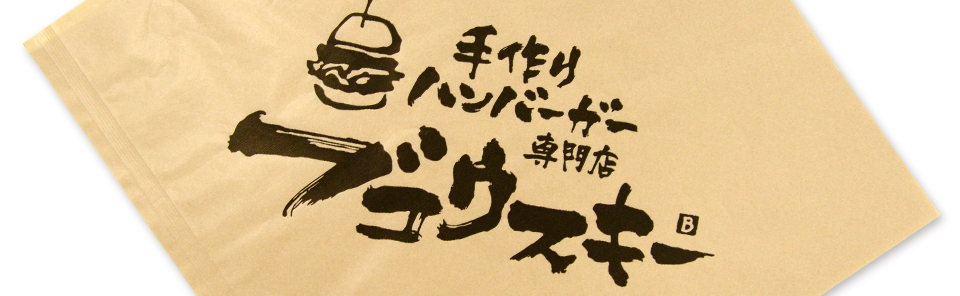 手作り
ハンバーガー
専門店
ブコウスキー
B